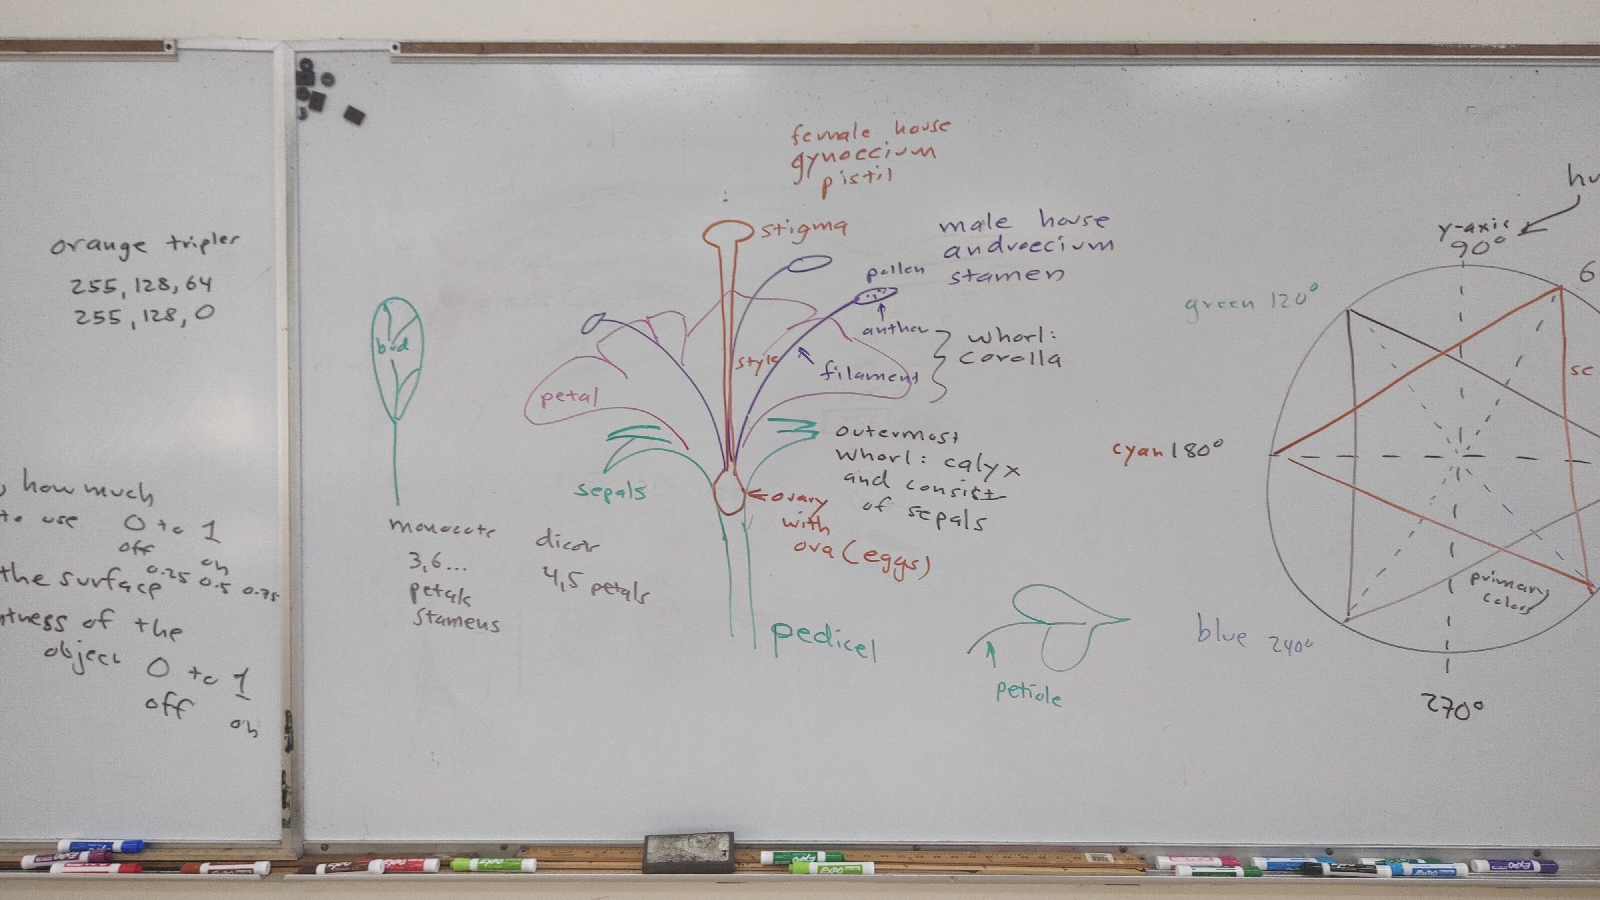 orange tripler
255, 128, 64
255, 128, 0
how much
to use 0 to 1
off on
the surface 0.25 0.5 0.75
of the
object 0 to 1
off on
female house
gynoecium
pistil
stigma
male house
androecium
stamen
pollen
anther
filament
style
whorl:
corolla
bud
petal
sepals
outermost
whorl: calyx
and consist
of sepals
ovary
with
ova (eggs)
monocots
3,6...
petals
stamens
dicots
4,5 petals
pedicel
petiole
y-axis
90°
green 120°
6
cyan 180°
primary
colors
blue 240°
270°
EXPO